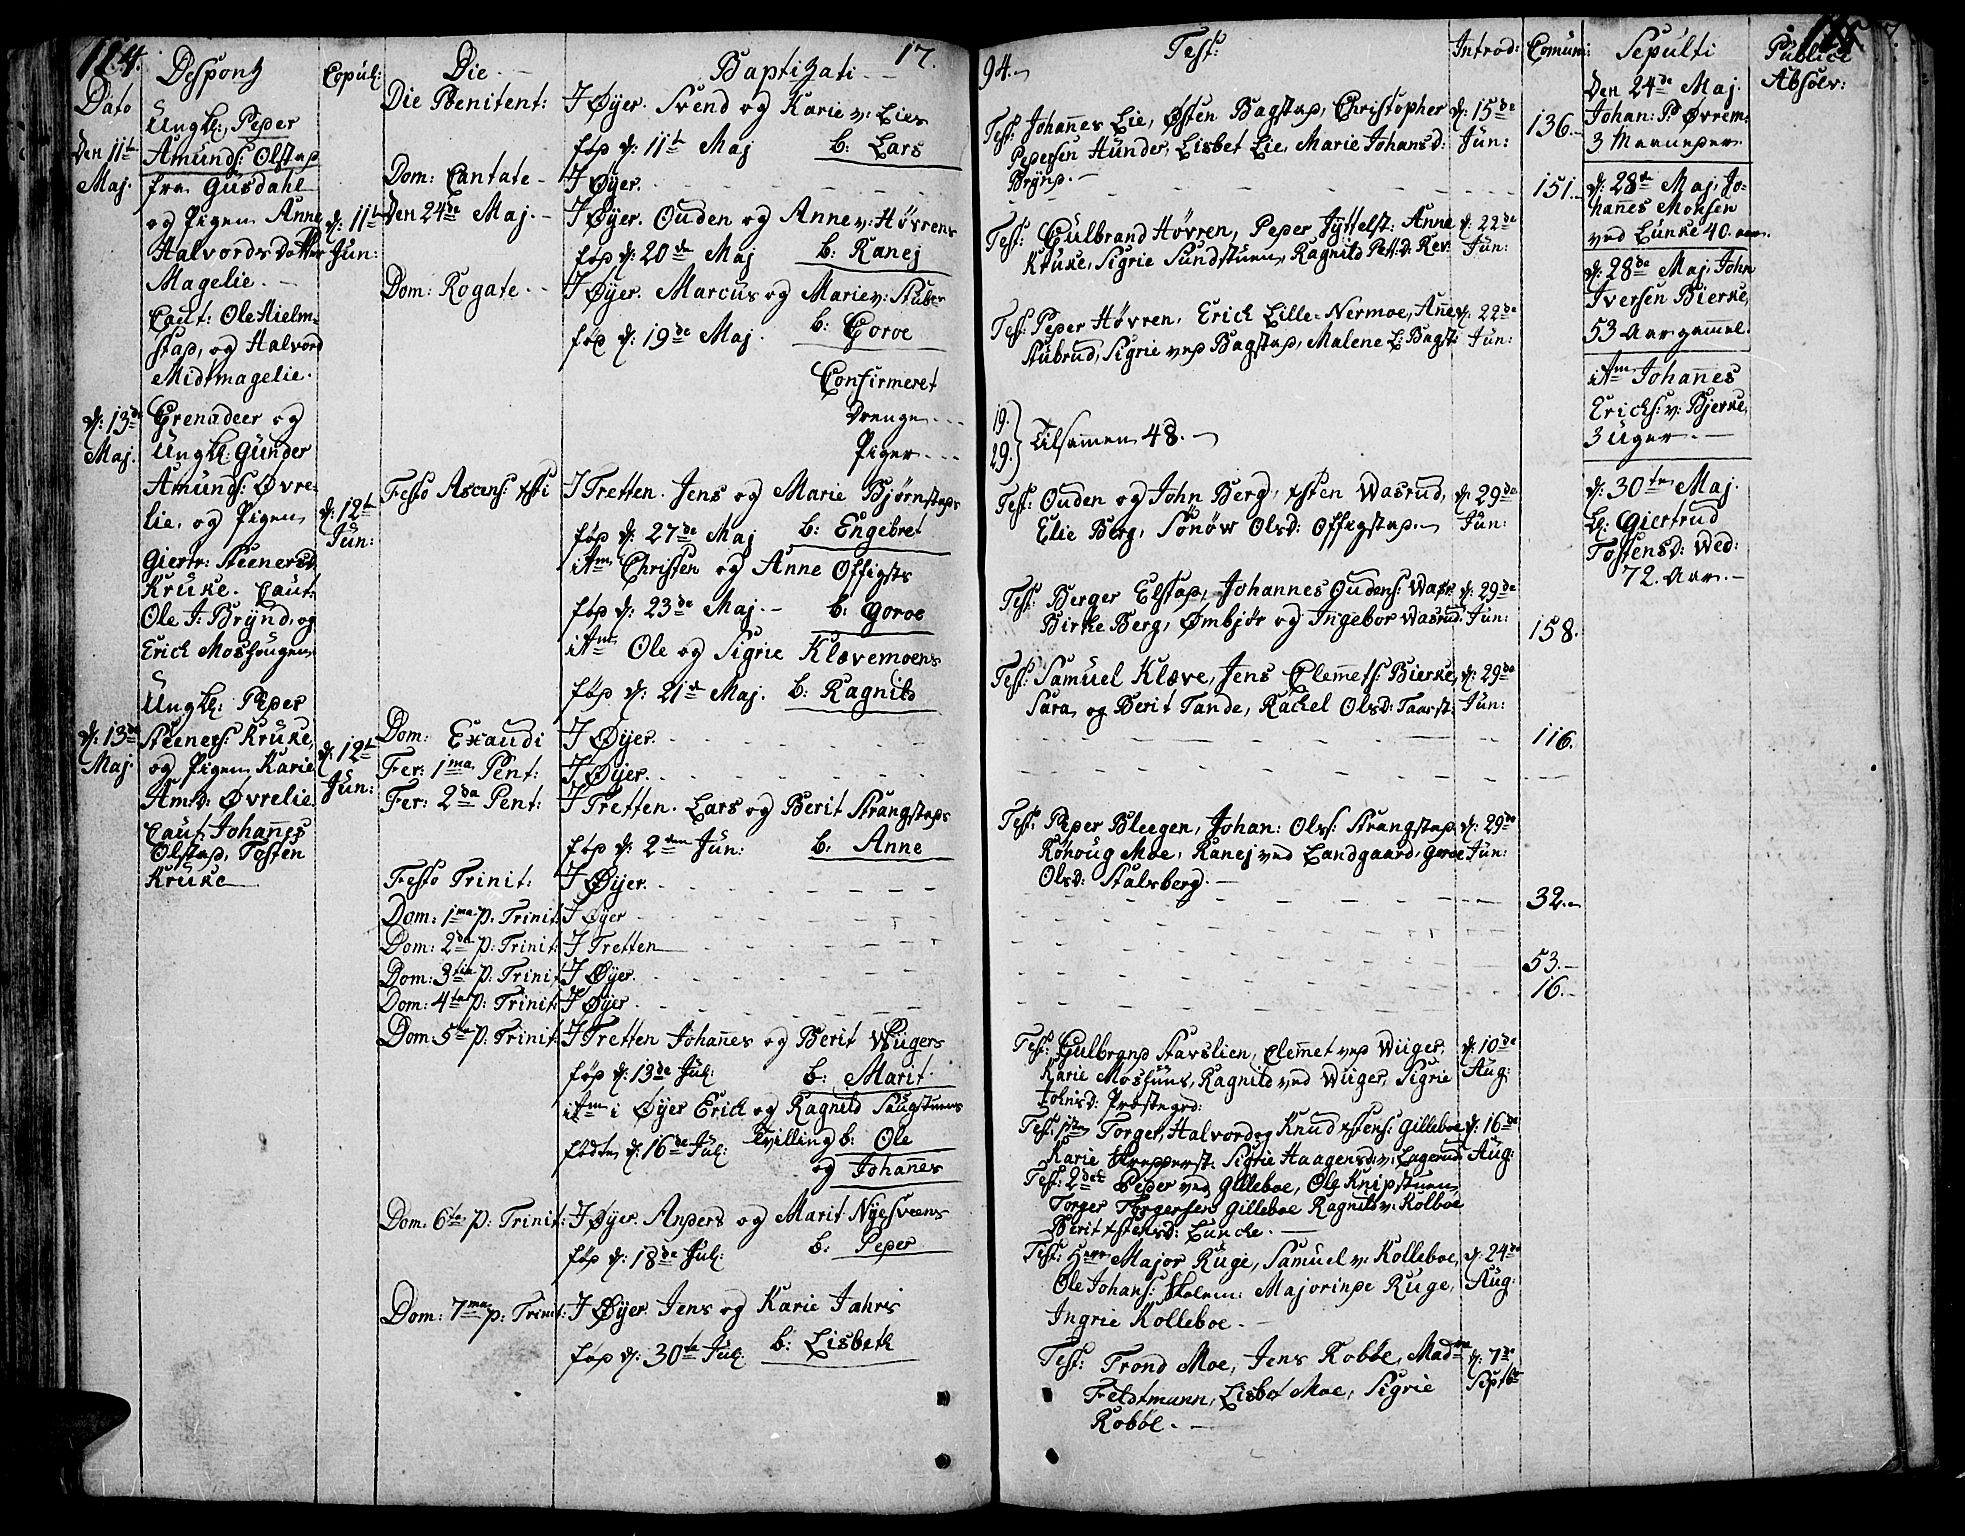 114.
Dato
Despons
Copul:
Die
Baptizati
17
Den 11te
Maj.
Ungk: Peder
Amunds: Olstad
fra Gusdahl
og Pigen Anne
Halvords Datter
Magelie.
Caut: Ole Hielm-
stad, og Halvord
Midtmagelie.
d: 11te
Jun:
d: 13de
Maj.
Grenadeer og
Ungk: Gunder
Amunds: Øvre-
lie, og Pigen
Giertr: Steenersd:
Kruke. Caut:
Ole J: Brynd, og
Erich Moshougen
d: 12te
Jun:
d: 13de
Maj.
Ungk: Peder
Steeners: Kruke,
og Pigen Karie
Am:d: Øvrelie.
Caut: Johannes
Olstad, Tosten
Kruke
d: 12te
Jun:
Die Poenitent:
I Øyer. Svend og Karie v: Lies
fød d: 11te Maj b: Lars
Dom: Cantate
I Øyer.
Den 24de Maj.
I Øyer. Ouden og Anne v: Høvrens
fød d: 20de Maj b: Ranej
Dom: Rogate
I Øyer. Marcus og Marie v: Stubs
fød d: 19de Maj. b: Goroe
Confirmeret
Drenge
Piger
Festo Ascens: Xsti
I Tretten. Jens og Marie Bjørnstads
fød d: 27de Maj b: Engebret
itm Christen og Anne Offigsts
fød d: 23de Maj. b: Goroe
itm Ole og Sigrie Klævemoens
fød d: 21de Maj. b: Ragnild
Dom: Exaudi I Øyer.
Fer: 1ma Pent: I Øyer.
Fer: 2da Pent: I Tretten. Lars og Berit Strangstads
fød d: 2den Jun: b: Anne
Festo Trinit: I Øyer.
Dom: 1ma p: Trinit: I Øyer
Dom: 2da p: Trinit: I Tretten
Dom: 3tia p: Trinit: I Øyer.
Dom: 4ta p: Trinit: I Øyer
Dom: 5ta p: Trinit: I Tretten Johannes og Berit Wügers
fød d: 13de Jul: b: Marit
itm i Øyer Erich og Ragnild Haugstuens
fødte d: 16de Jul: Tvilling b: Ole
og Johannes
Dom: 6ta p: Trinit: I Øyer. Anders og Marit Nyesveens
fød d: 18de Jul: b: Peder
Dom: 7ma p: Trinit: I Øyer. Jens og Karie Jahrs
fød d: 30te Jul: b: Lisbeth
94.
Test:
Introd:
Comun:
Sepulti
Publice
Absolv:
115
Test: Johannes Lie, Østen Bagstad, Christopher
Pedersen Hunder, Lisbet Lie, Marie Johansd:
Brynd.
d: 15de
Jun:
136.
151.
Test: Gulbrand Høvren, Peder Jyttelst: Anne
Kruke, Sigrie Sundstuen, Ragnild Ped:d: Rev:
d: 22de
Jun:
Test: Peder Høvren, Erich Lille-Nermoe, Anne
Aubrud, Sigrie ved Bagstad, Malene L: Bagst:
d: 22de
Jun:
19.
29. Tilsamen 48.
Test: Ouden og John Berg, Østen Wasrud,
Elie Berg, Sønøw Olsd: Offigstad.
d: 29de
Jun:
Test: Berger Elstad, Johannes Oudens: Wasr:
Birke Berg, Ømbjør og Ingebor Wasrud.
d: 29de
Jun:
158.
Test: Samuel Klæve, Jens Clemets: Bierke,
Sara og Berit Tande, Rachel Olsd: Taarst:
d: 29de
Jun:
116.
Test: Peder Bleegen, Johan: Ols: Strangstad,
Rønoug Moe, Ranej ved Landgaard, Goroe
Olsd: Stalsberg.
d: 29de
Jun:
32.
53.
16.
Test: Gulbrand Stavslien, Clemet ved Wüger,
Karie Moshuus, Ragnild ved Wüger, Sigrie
Johnsd: Præstegrd:
d: 10de
Aug:
Test: 1ste Torger, Halvord og Knud Østens: Gilleboe,
Karie Skredderst: Sigrie Haagensd: v: Lagerud
d: 16de
Aug:
Test: 2det Peder ved Gilleboe, Ole Knipstuen,
Torger Torgersen Gilleboe Ragnild v: Kolboe
Berit Østensd: Luncke.
Test: Herr Major Ruge, Samuel v: Kolleboe,
Ole Johans: Skolem: Majorinde Ruge,
Ingrie Kolleboe.
d: 24de
Aug:
Test: Trond Moe, Jens Robøle, Madme
Feldtmann, Lisbet Moe, Sigrie
Robøl.
d: 7de
Septbr
Den 24de Maj.
Johan: P: Øvrem:
3 Maaneder
d: 28de Maj, Jo-
hannes Monsen
ved Lunke 40. aar.
d: 28de Maj, John
Iversen Bierke,
53 Aar gammel.
itm Johannes
Erichs: v: Bjerke,
3 uger.
d: 30te Maj.
K: Giertrud
Tostensd: Wed:
72. Aar.